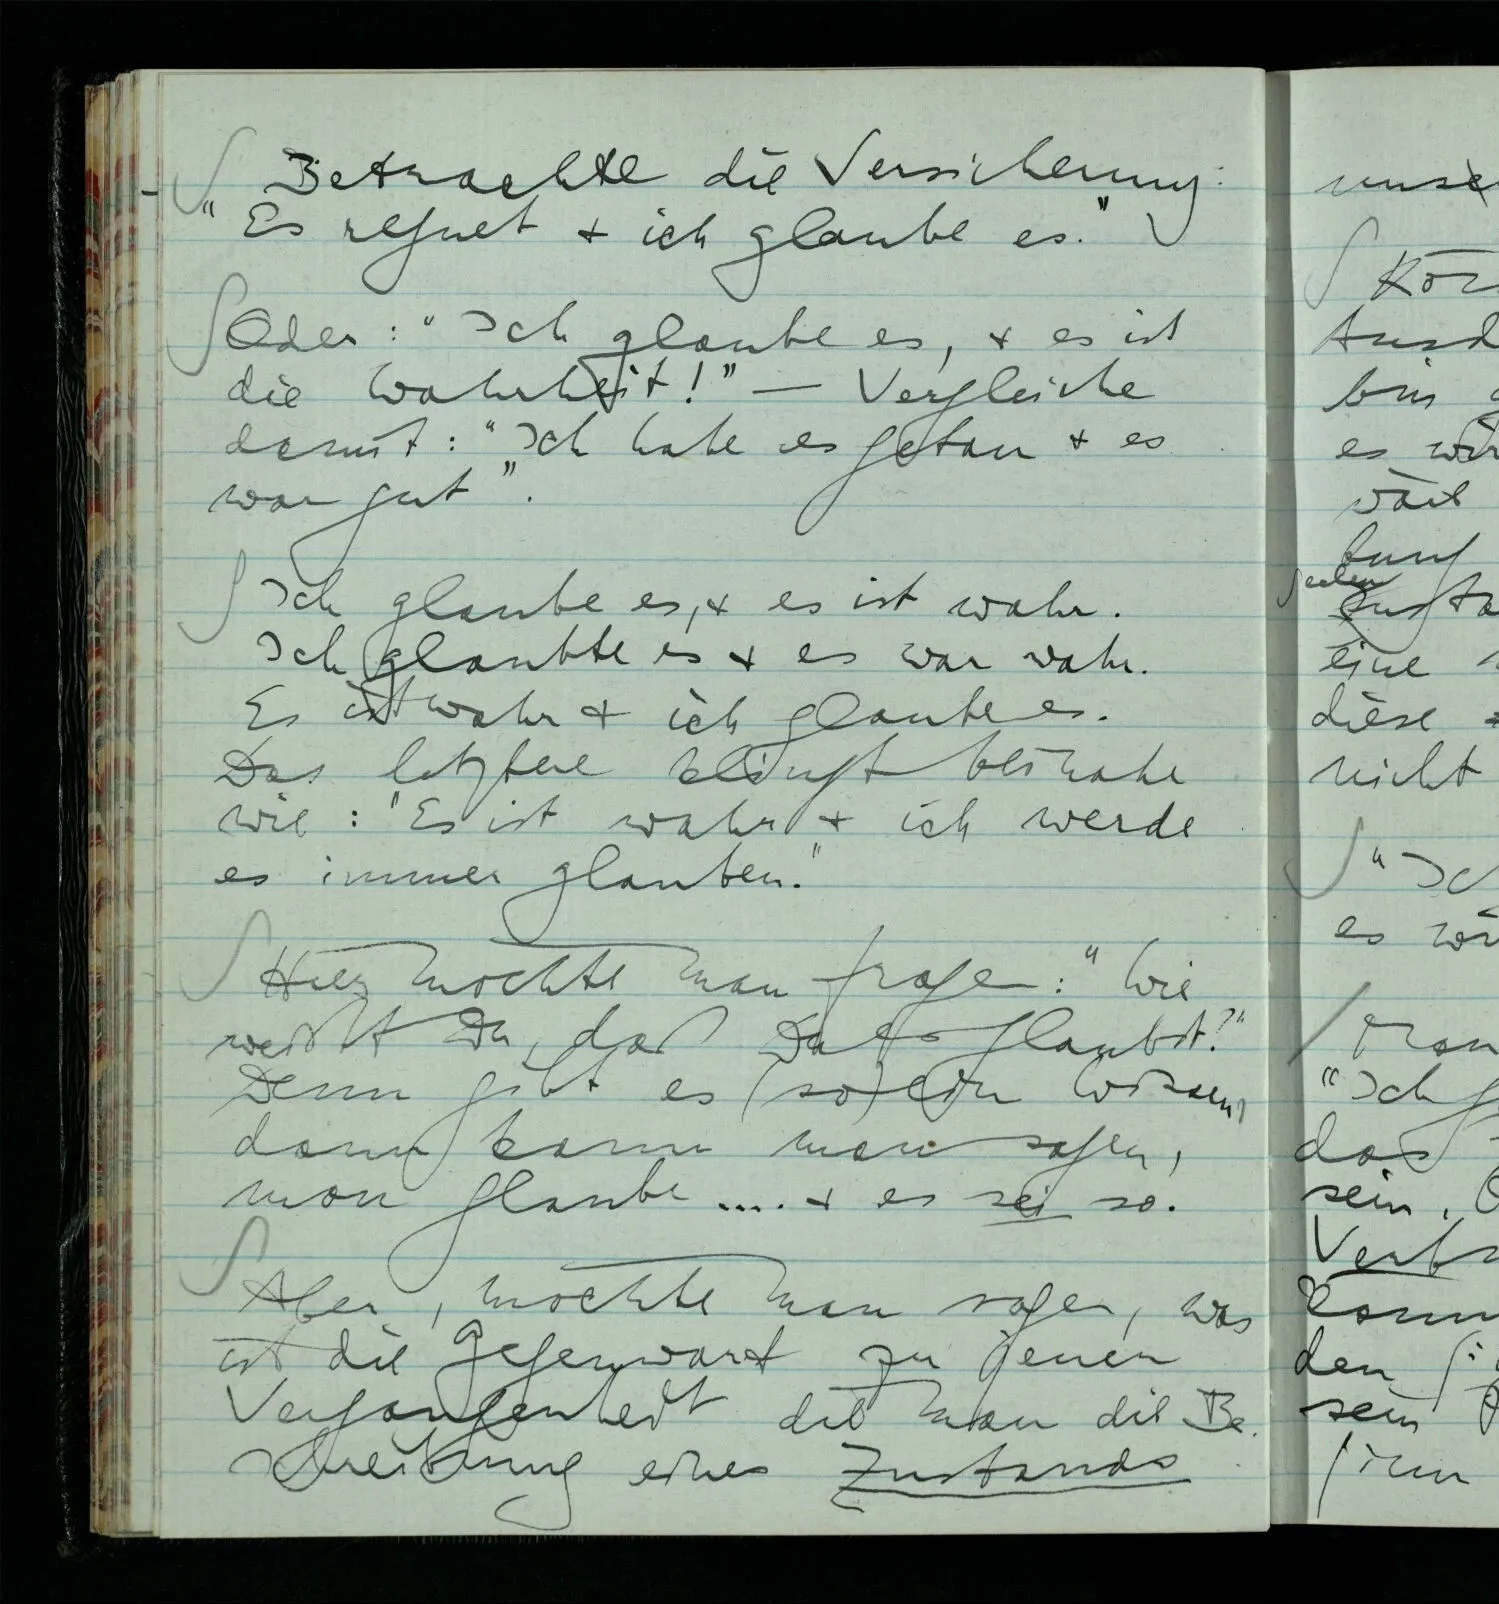 Betrachte die Versicherung:
"Es regnet + ich glaube es."
Oder: "Ich glaube es, + es ist
die Wahrheit!" — Vergleiche
damit: "Ich habe es getan + es
war gut".
Ich glaube es, + es ist wahr.
Ich glaubte es + es war wahr.
Es ist wahr + ich glaube es.
Das letztere klingt beinahe
wie: "Es ist wahr + ich werde
es immer glauben."
Hier möchte man fragen: "Wie
weißt Du, daß Du es glaubst?"
Denn gibt es (so) ein Wissen,
dann kann man sagen,
man glaube .... + es sei so.
Aber, möchte man sagen, was
ist die Gegenwart zu jener
Vergangenheit die man die Be-
schreibung eines Zustands
es
diese
nicht
"Ich
es
"Ich
das
sein.
den
sein